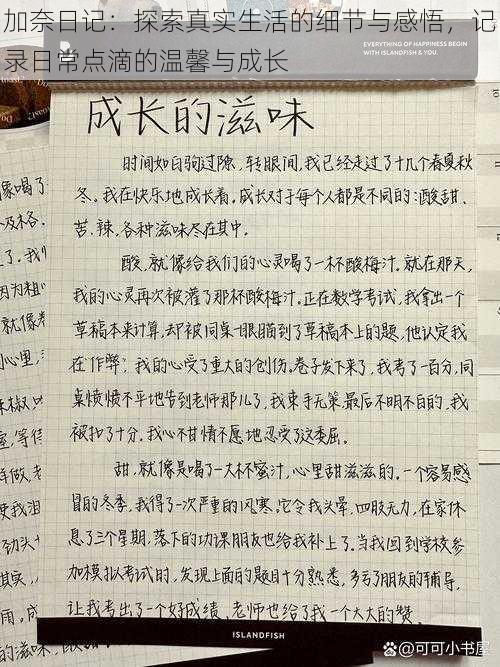 加奈日记：探索真实生活的细节与感悟，记
录日常点滴的温馨与成长
EVERYTHING OF HAPPINESS BEGIN
WITH ISLANDFISH & YOU.
成长的滋味
时间如白驹过隙，转眼间，我已经走过了十几个春夏秋
冬。我在快乐地成长着。成长对于每个人都是不同的：酸、甜、
苦、辣，各种滋味尽在其中。
酸，就像给我们的心灵喝了一杯酸梅汁。就在那天，
我的心灵再次被灌了那杯酸梅汁。正在数学考试，我拿出一个
草稿本来计算，却被同桌一眼瞄到了草稿本上的题，他认定我
在"作弊"，我的心受了重大的创伤。卷子发下来了，我考了一百分，同
桌愤愤不平地告到老师那儿了，我束手无策，最后不明不白的，我
被扣了十分。我心不甘情不愿地忍受了这委屈。
甜，就像是喝了一大杯蜜汁，心里甜滋滋的。一个容易感
冒的冬季，我得了一次严重的风寒。它令我头晕，四肢无力，在家休
息了三个星期，落下的功课朋友也给我补上了。当我回到学校参
加模拟考试的，发现上面的题目十分熟悉，多亏了朋友的辅导，
让我考出了一个好成绩，老师也给了我一个大大的赞。
ISLANDFISH
可可小书屋
像喝了
不及格
了。我
因为粗
就像
小心里
辣椒以
室，等待
样做，老
使我泪
劲头十
其实，
雨。成
的滋味，